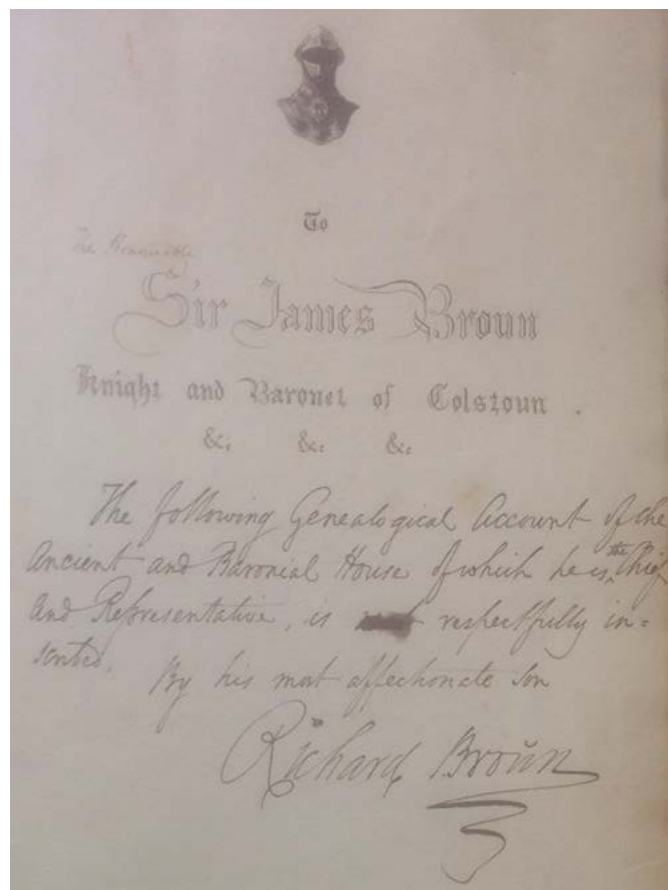 To
The Honourable
Sir James Broun
Knight and Baronet of Colstoun .
&c. &c. &c.
The following Genealogical Account of the
Ancient and Baronial House of which he is the Chief
And Representative, is respectfully in=
scribed.
By his most affectionate Son
Richard Broun